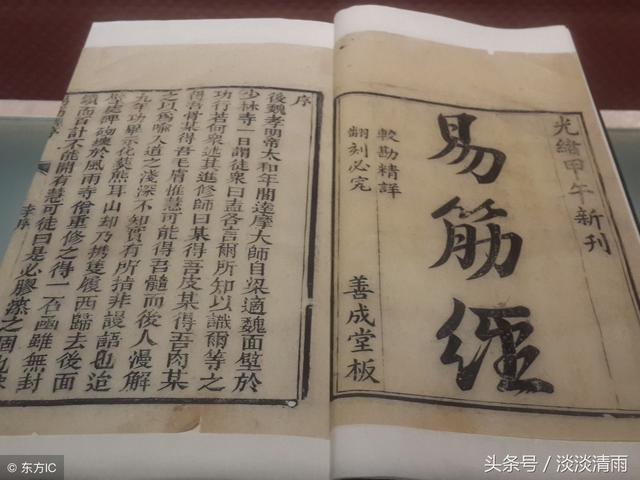 光緒甲午新刊
易筋經
較勘精詳
翻刻必究
善成堂板
序
後魏孝明帝太和年間達摩大師自梁適魏面壁於
少林寺一日謂徒衆曰盍各言爾所知以識爾等之
功行若何衆述其進修師曰某得吾皮某得吾肉某
得吾骨某得吾毛眉惟慧可能得吾髓而後人漫解
之以爲喩入道之淺深不知實有所指非謾語也迨
九年功畢示化葬熊耳山却乃携隻履西歸去後面
壁處碑砌壞於風雨寺僧重修之得一石函雖無封
鎖而百計不能開有慧可徒曰是必膠漆之個也
李序
© 东方IC
头条号 / 淡淡清雨